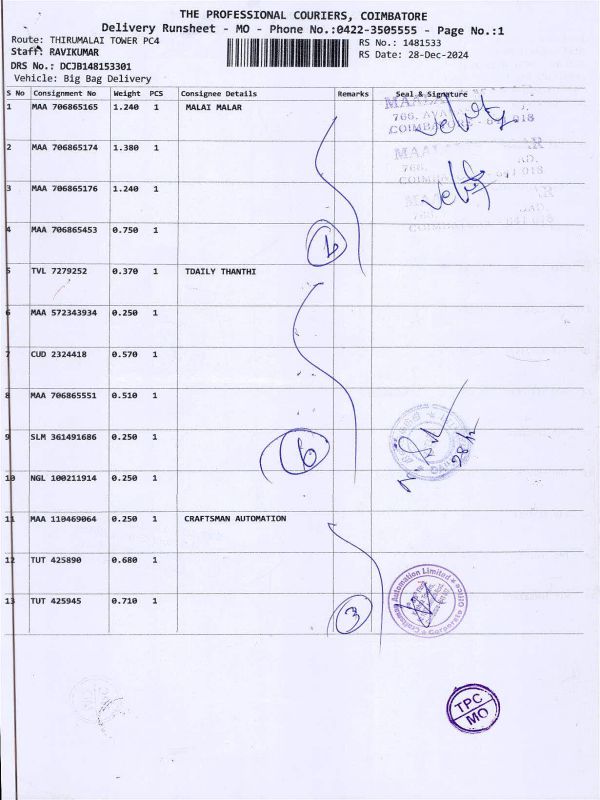 THE PROFESSIONAL COURIERS, COIMBATORE
Delivery Runsheet - MO - Phone No.:0422-3505555 - Page No.:1
Route: THIRUMALAI TOWER PC4
RS No.: 1481533
Staff: RAVIKUMAR
RS Date: 28-Dec-2024
DRS No.: DCJB148153301
Vehicle: Big Bag Delivery
S No Consignment No Weight PCS Consignee Details Remarks Seal & Signature
1 MAA 706865165 1.240 1 MALAI MALAR
766, COIMBATORE - 641 018
2 MAA 706865174 1.380 1
766, 641 018
3 MAA 706865176 1.240 1
641 018
4 MAA 706865453 0.750 1
5 TVL 7279252 0.370 1 TDAILY THANTHI
6 MAA 572343934 0.250 1
7 CUD 2324418 0.570 1
8 MAA 706865551 0.510 1
9 SLM 361491686 0.250 1
28/12
6
10 NGL 100211914 0.250 1
11 MAA 110469064 0.250 1 CRAFTSMAN AUTOMATION
12 TUT 425890 0.680 1
Craftsman Automation Limited * Corporate Office *
13 TUT 425945 0.710 1
3
TPC
MO